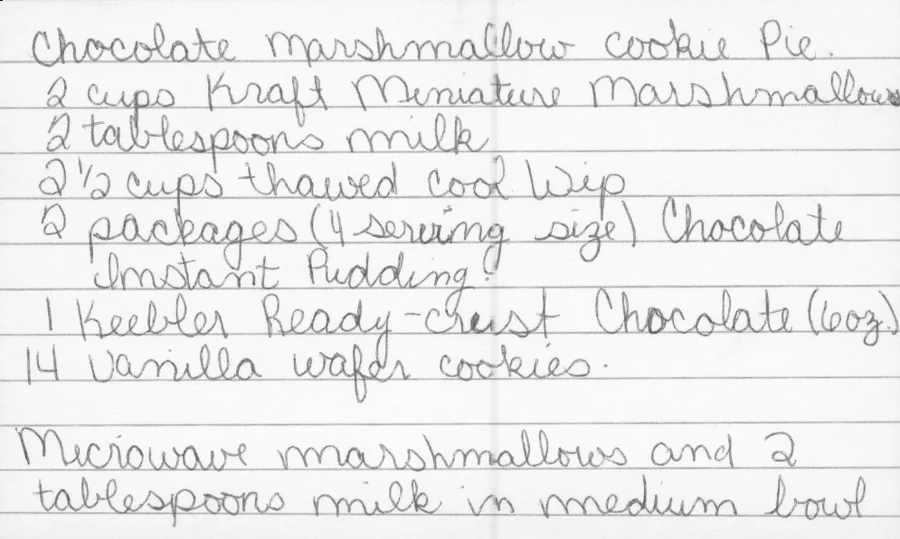 Chocolate Marshmallow Cookie Pie.
2 cups Kraft Miniature Marshmallows
2 tablespoons milk
2 1/2 cups thawed cool Wip
2 packages (4 serving size) Chocolate
Instant Pudding.
1 Keebler Ready-crust Chocolate (6oz.)
14 Vanilla wafer cookies.
Microwave marshmallows and 2
tablespoons milk in medium bowl